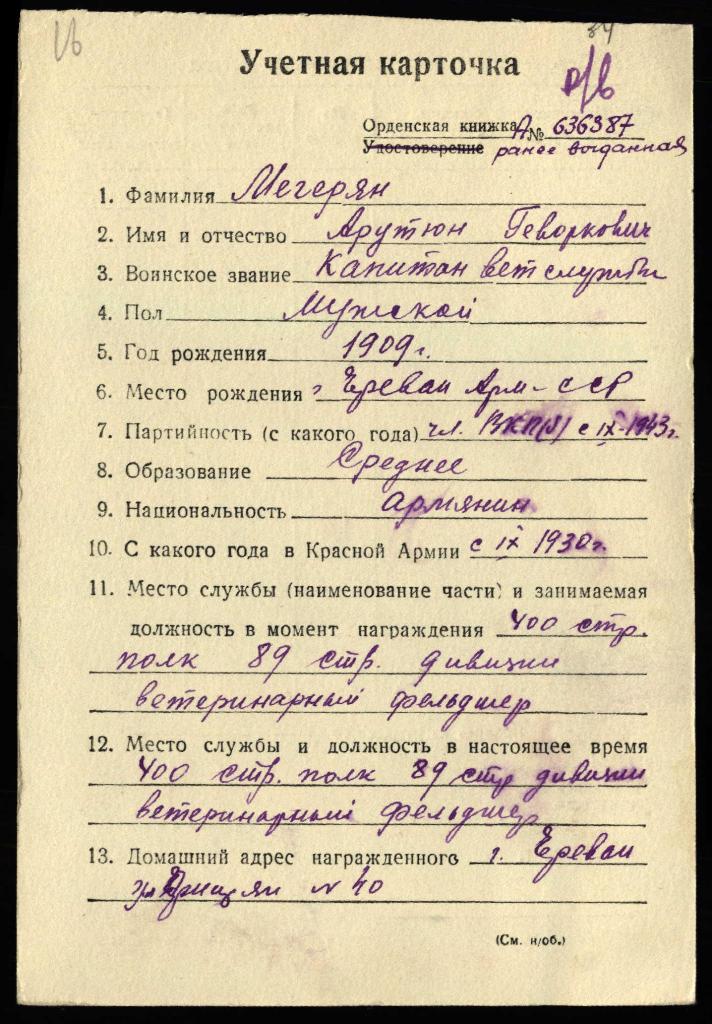 16
34
Учетная карточка
Орденская книжка А№ 636387
Удостоверение ранее выданная
1. Фамилия Мегерян
2. Имя и отчество Арутюн Геворкович
3. Воинское звание Капитан вет службы
4. Пол Мужской
5. Год рождения 1909 г.
6. Место рождения г Ереван Арм-ССР
7. Партийность (с какого года) чл. ВКП(б) с IX-1943 г.
8. Образование Среднее
9. Национальность армянин
10. С какого года в Красной Армии с IX 1930 г.
11. Место службы (наименование части) и занимаемая
должность в момент награждения 400 стр.
полк 89 стр. дивизии
ветеринарный фельдшер
12. Место службы и должность в настоящее время
400 стр. полк 89 стр дивизии
ветеринарный фельдшер
13. Домашний адрес награжденного г. Ереван
N 40
(См. н/об.)